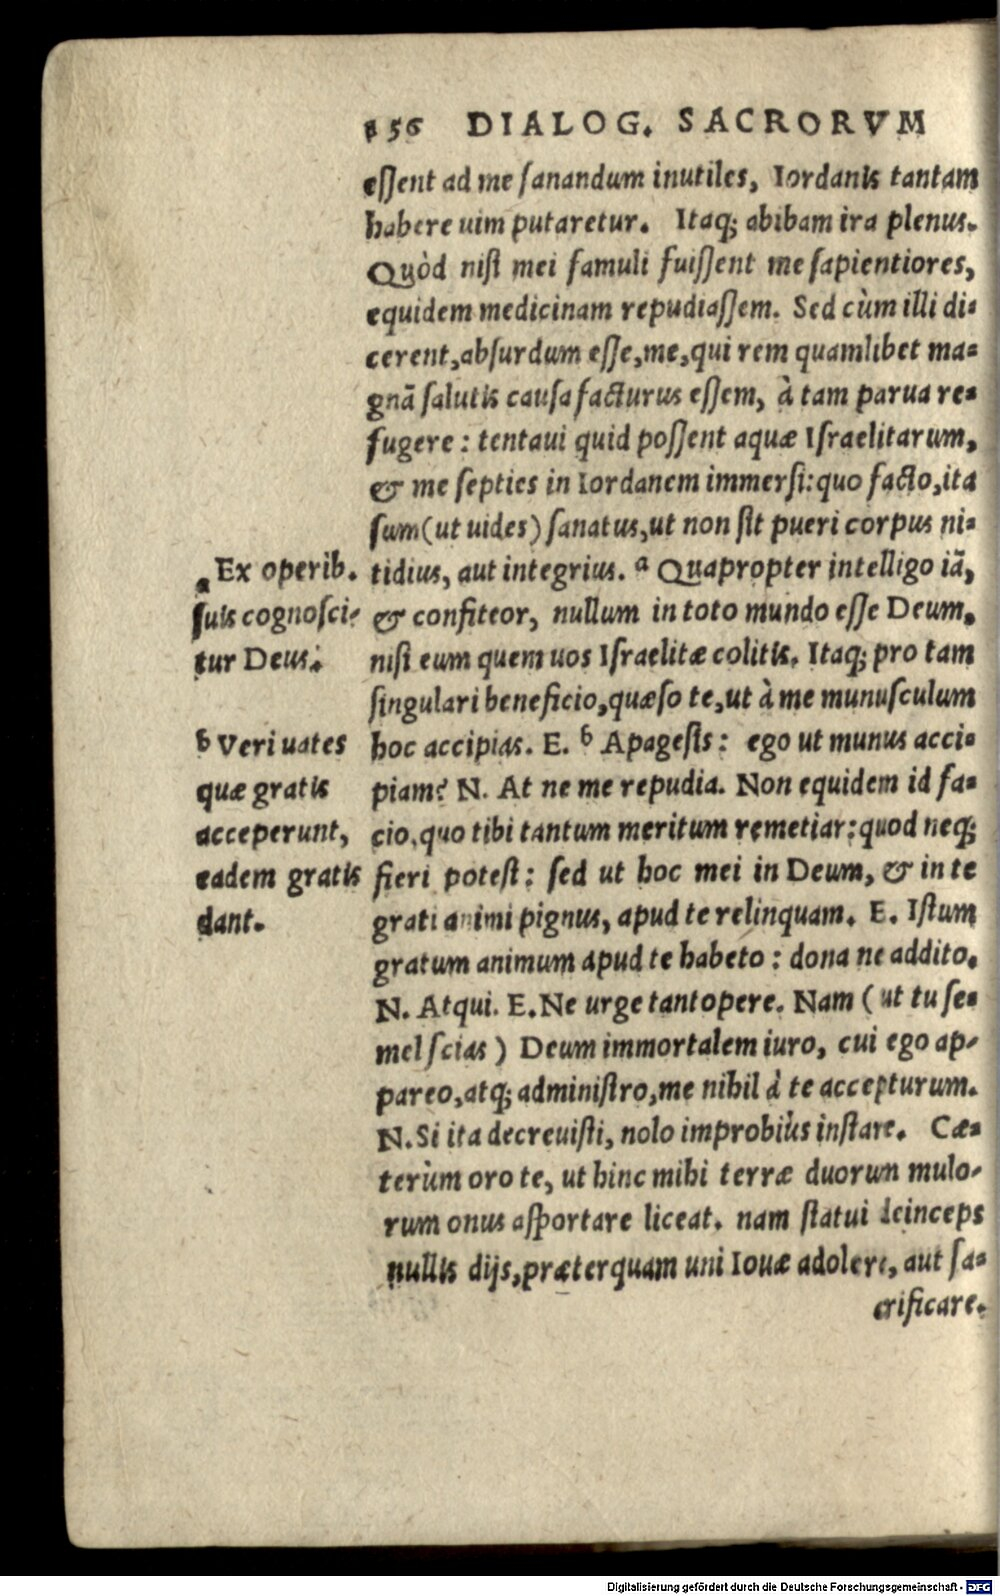 156 DIALOG. SACRORVM
eſſent ad me ſanandum inutiles, Iordanis tantam
habere uim putaretur. Itaq; abibam ira plenus.
Quòd niſi mei famuli fuiſſent me ſapientiores,
equidem medicinam repudiaſſem. Sed cùm illi di-
cerent, abſurdum eſſe, me, qui rem quamlibet ma-
gnā ſalutis cauſa facturus eſſem, à tam parua re-
fugere: tentaui quid poſſent aquæ Iſraelitarum,
& me ſepties in Iordanem immerſi: quo facto, ita
ſum (ut uides) ſanatus, ut non ſit pueri corpus ni-
tidius, aut integrius. a Quapropter intelligo iā,
& confiteor, nullum in toto mundo eſſe Deum,
niſi eum quem uos Iſraelitæ colitis. Itaq; pro tam
ſingulari beneficio, quæſo te, ut à me munuſculum
hoc accipias. E. b Apageſis: ego ut munus acci-
piam? N. At ne me repudia. Non equidem id fa-
cio, quo tibi tantum meritum remetiar: quod neq;
fieri poteſt: ſed ut hoc mei in Deum, & in te
grati animi pignus, apud te relinquam. E. Iſtum
gratum animum apud te habeto: dona ne addito.
N. Atqui. E. Ne urge tantopere. Nam (ut tu ſe-
mel ſcias) Deum immortalem iuro, cui ego ap-
pareo, atq; adminiſtro, me nihil à te accepturum.
N. Si ita decreuiſti, nolo improbiùs inſtare. Cæ-
terùm oro te, ut hinc mihi terræ duorum mulo-
rum onus aſportare liceat. nam ſtatui deinceps
nullis dijs, præterquam uni Iouæ adolere, aut ſa-
crificare.
a Ex operib.
ſuis cognoſci-
tur Deus.
b Veri uates
quæ gratis
acceperunt,
eadem gratis
dant.
Digitalisierung gefördert durch die Deutsche Forschungsgemeinschaft - DFG